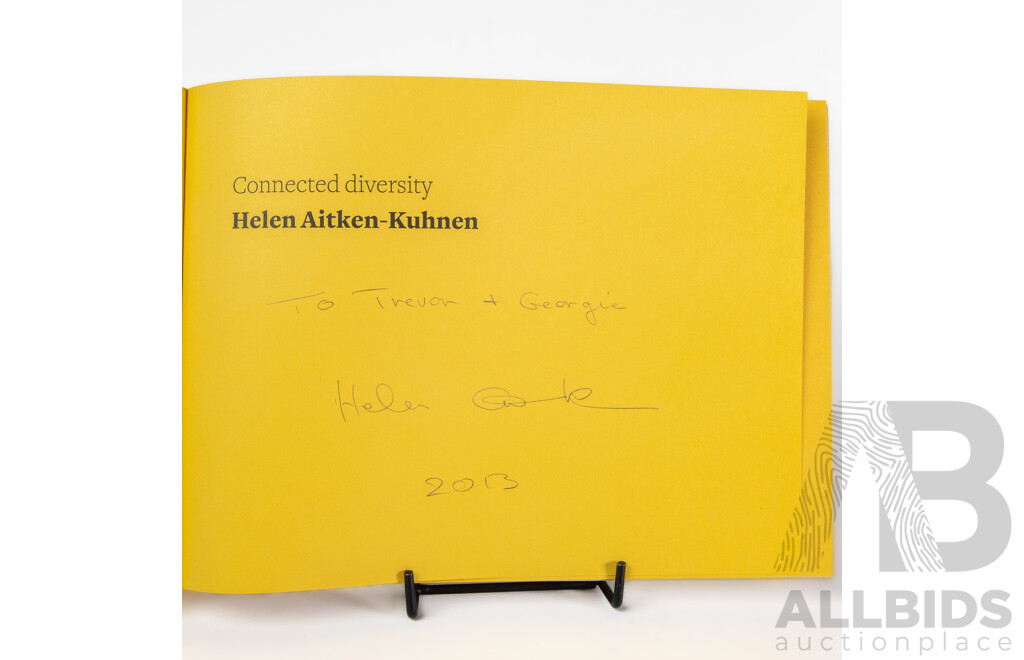 Connected diversity
Helen Aitken-Kuhnen
To Trevor + Georgie
Helen
2013
AB
ALLBIDS
auctionplace